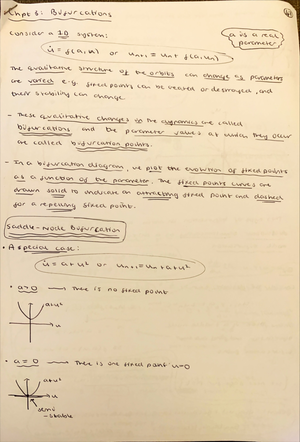 Chpt 6: Bifurcations
Consider a 1D system:
a is a real
parameter
u̇ = f(a,u) or uₙ₊₁ = uₙ + f(a,uₙ)
The qualitative structure of the orbits can change as parameters
are varied e.g. fixed points can be created or destroyed, and
their stability can change.
- These qualitative changes in the dynamics are called
bifurcations and the parameter values at which they occur
are called bifurcation points.
- In a bifurcation diagram, we plot the evolution of fixed points
as a function of the parameter. The fixed points curves are
drawn solid to indicate an attracting fixed point and dashed
for a repelling fixed point.
Saddle-Node Bifurcation
• A special case:
u̇ = a+u² or uₙ₊₁=uₙ+a+u²
• a>0 → There is no fixed point
a+u²
u
• a=0 → There is one fixed point u=0
a+u²
u
semi
-stable